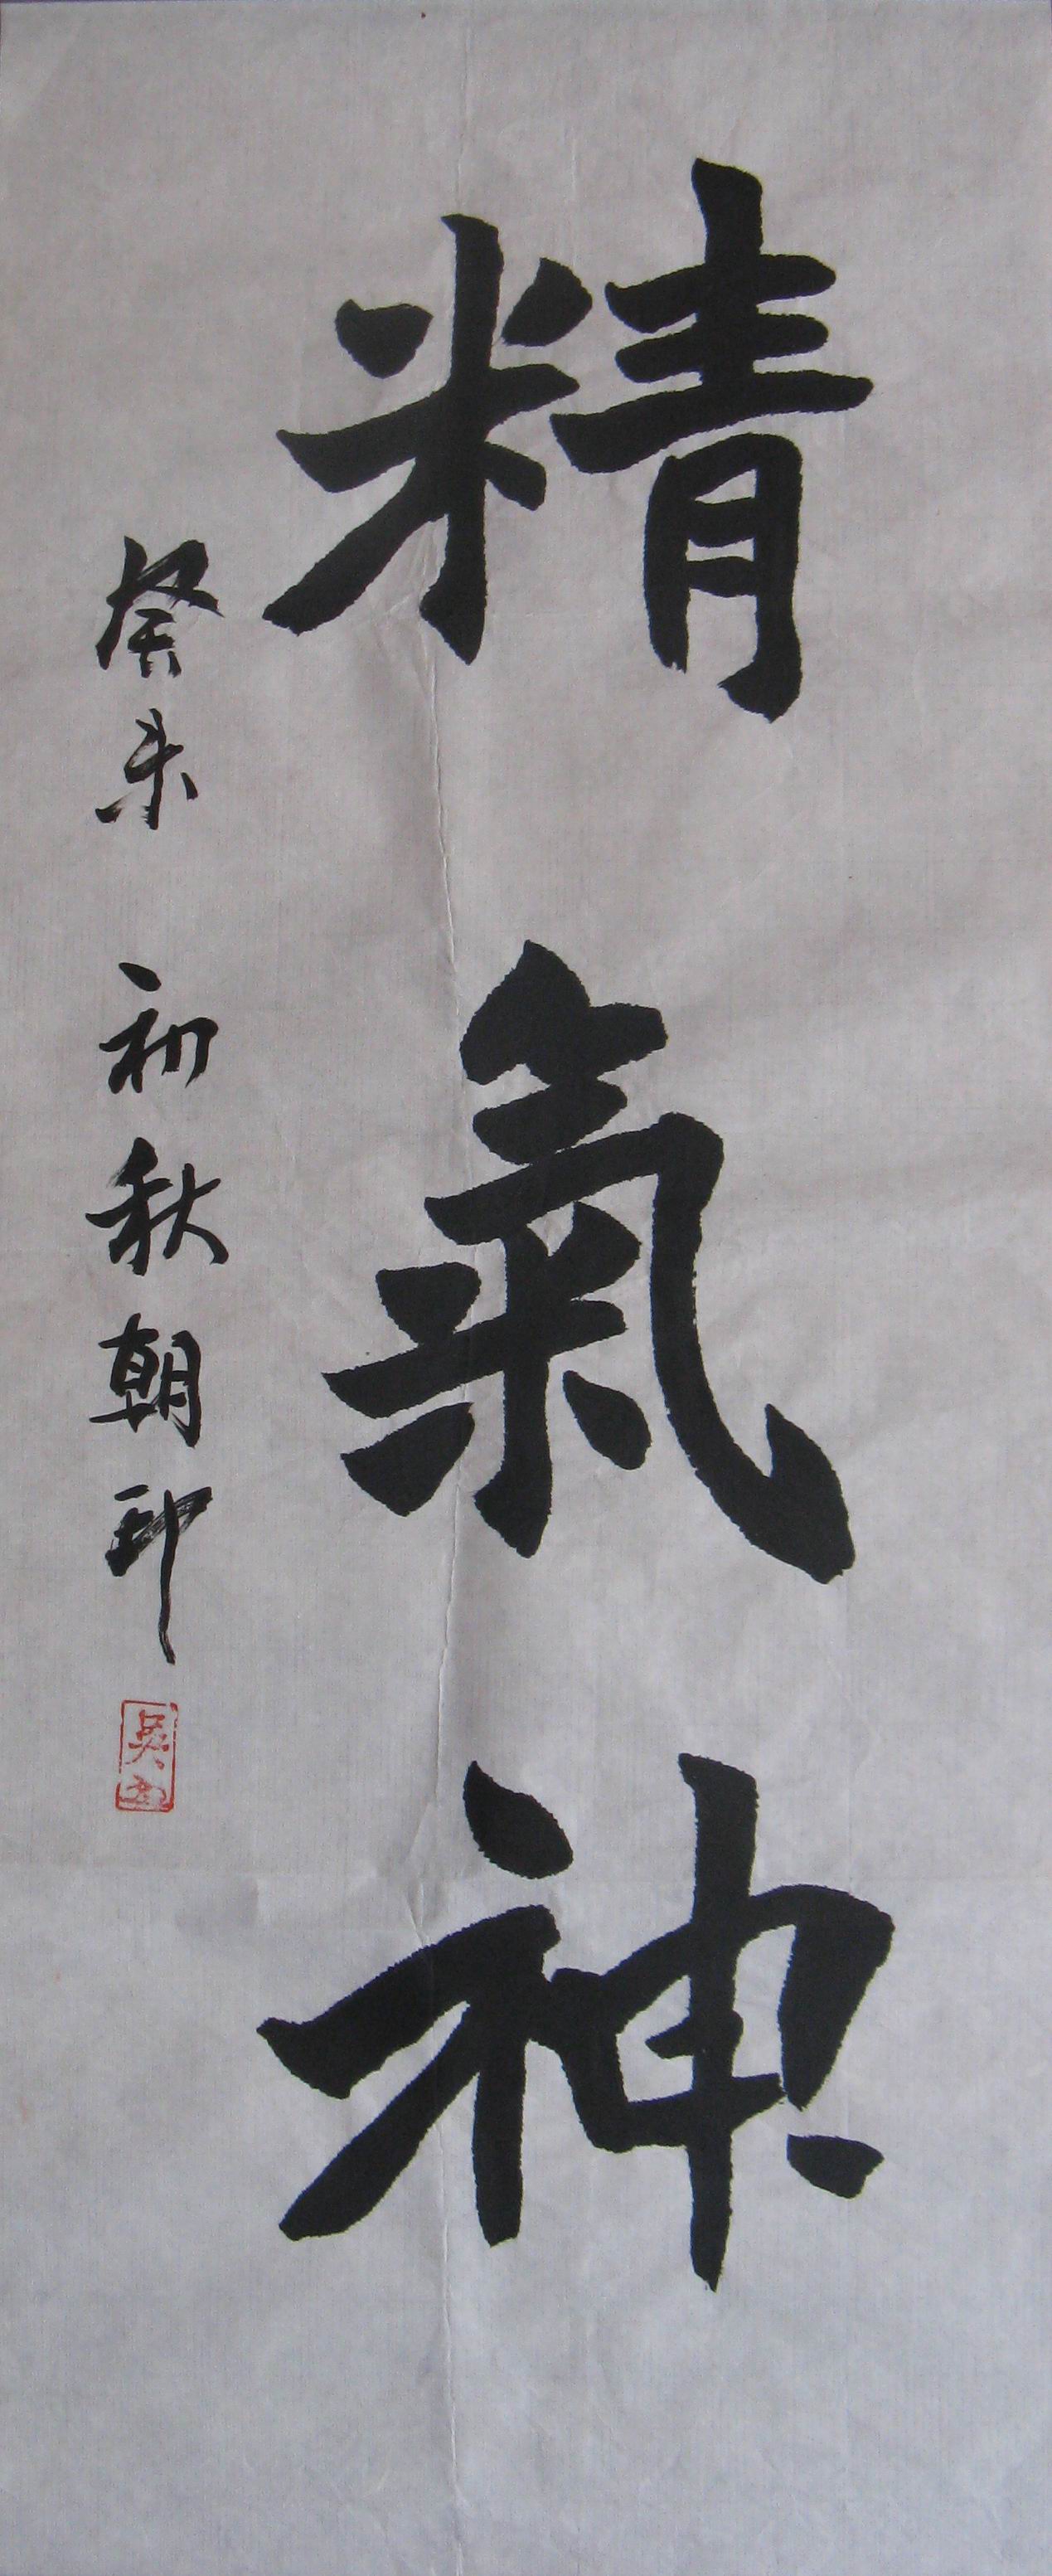 精氣神
癸未 初秋朝印
吳